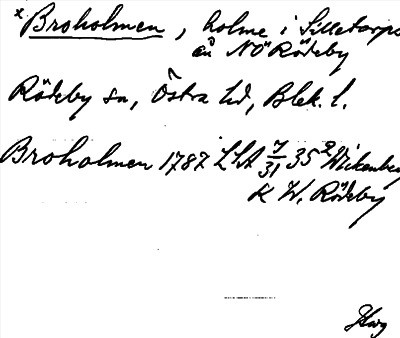 x Broholmen, holme i Silletorps
ån NÖ Rödeby
Rödeby sn, Östra hd, Blek. l.
Broholmen 1787 LSA 7/31 35² Wickenberg
K W. Rödeby